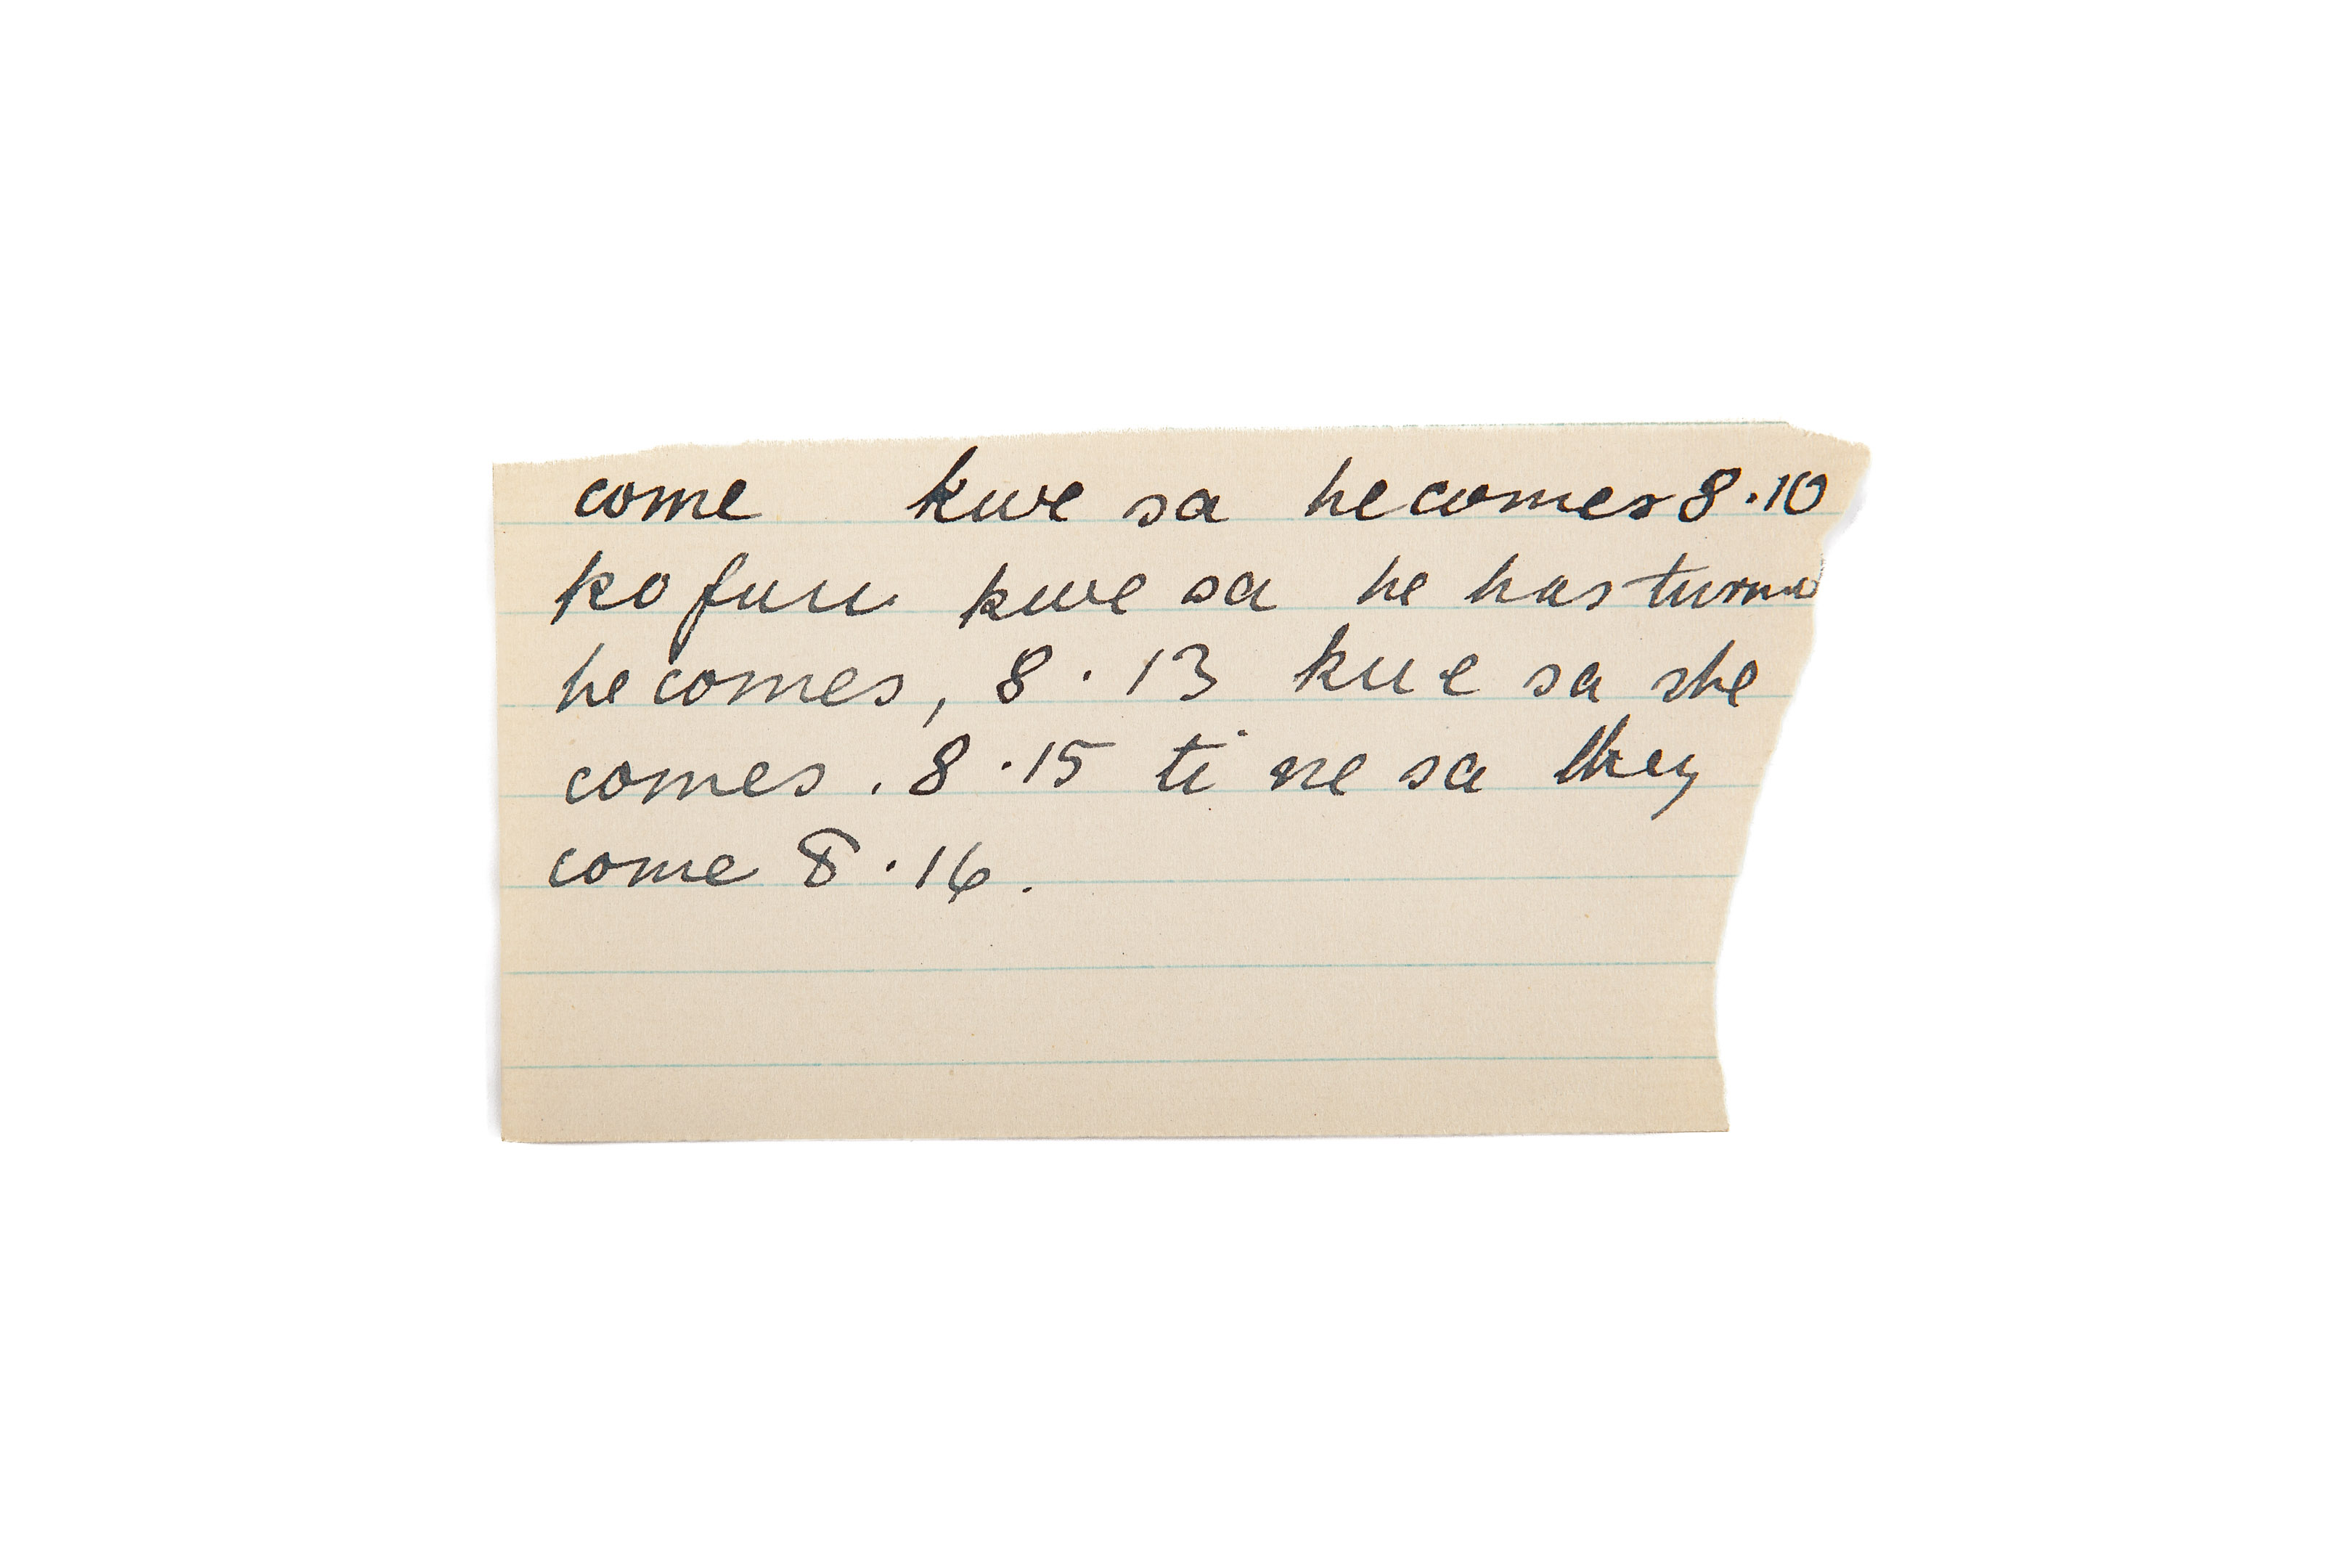 come kwe sa he comes 8.10
ko fuu kwe sa he has turna
he comes, 8.13 kue sa she
comes. 8.15 ti ne sa they
come 8.16.